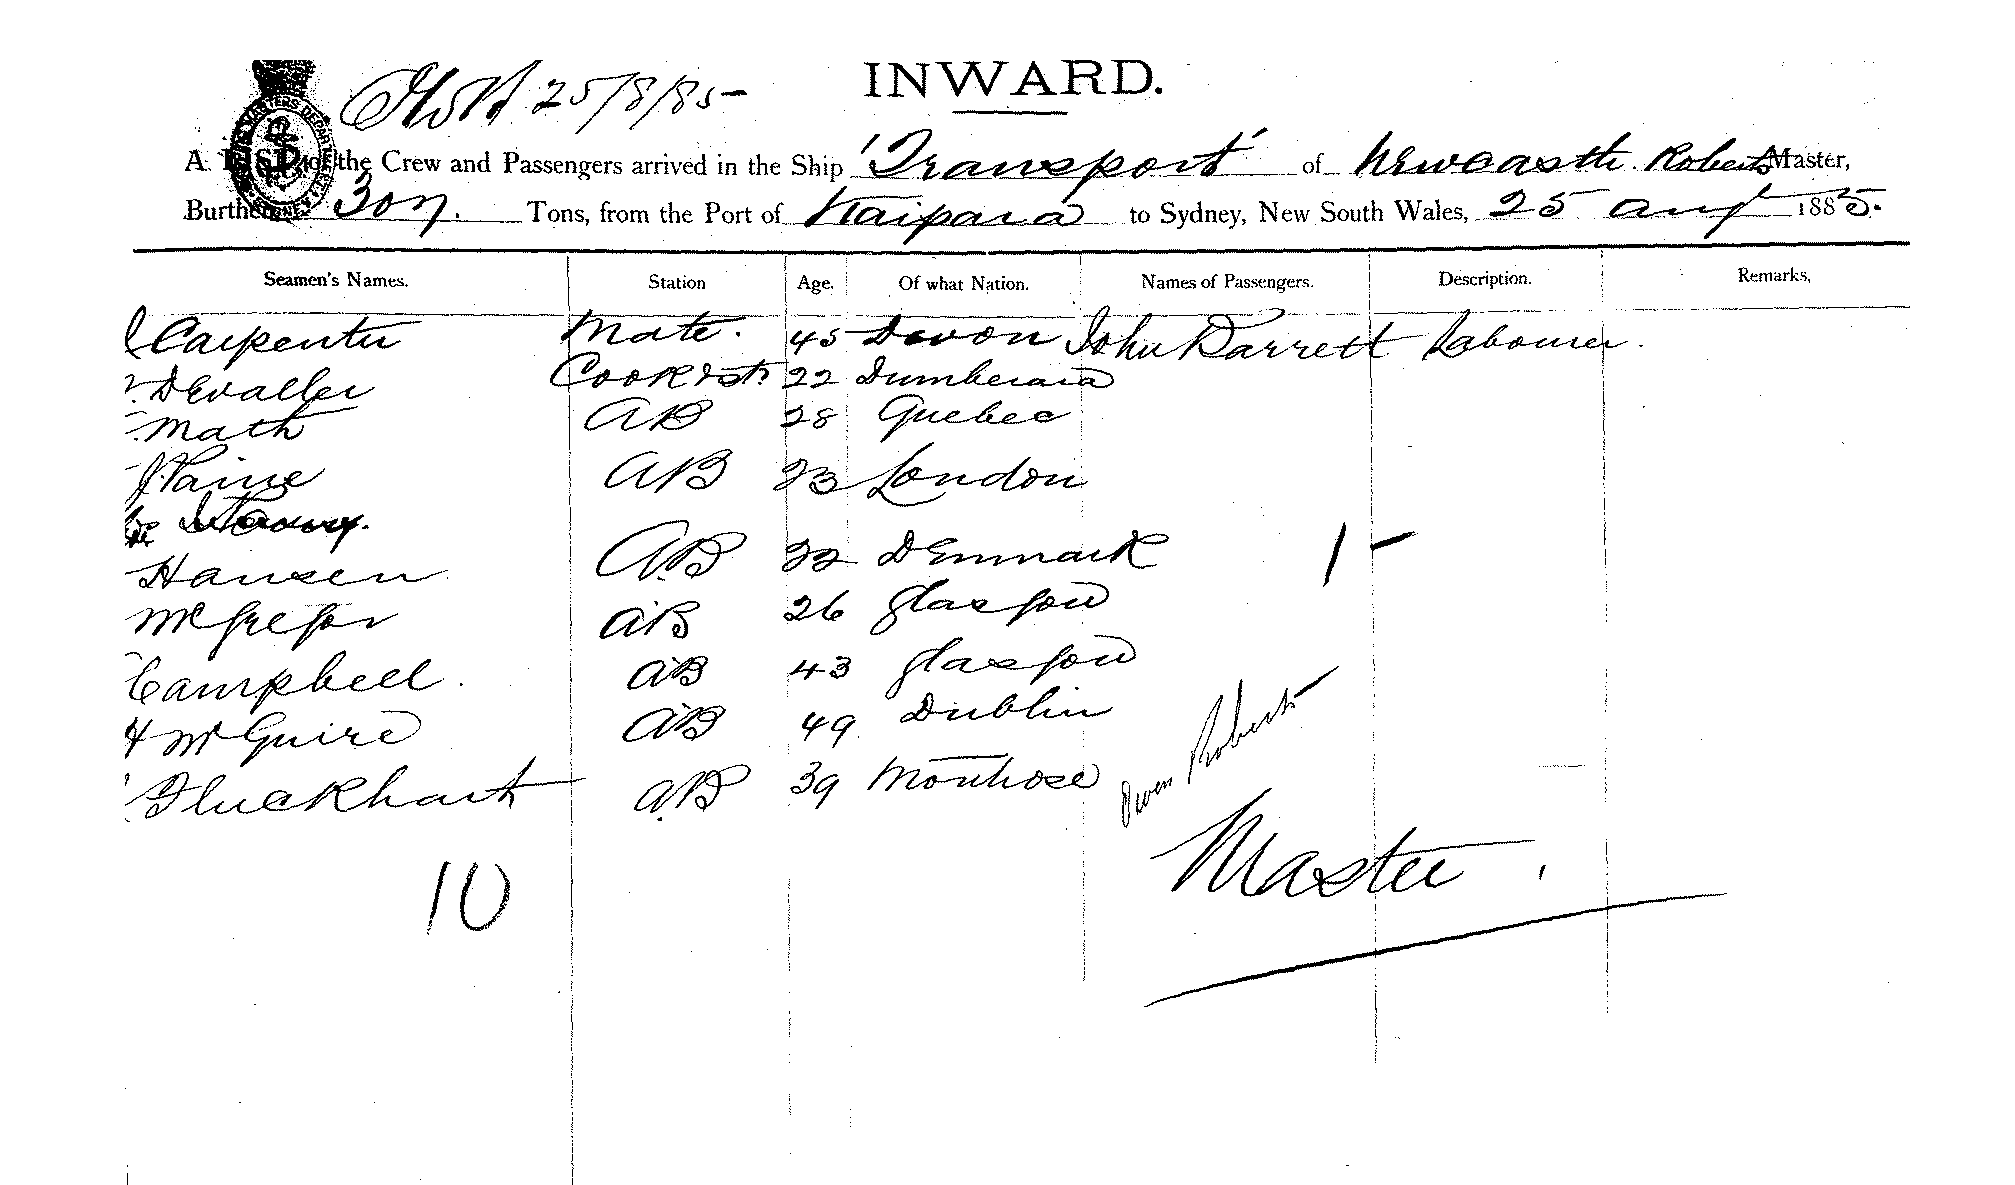 25/8/85-
INWARD.
A LIST of the Crew and Passengers arrived in the Ship 'Transport' of Newcastle. Roberts Master,
Burthen 307. Tons, from the Port of Kaipara to Sydney, New South Wales, 25 Aug 1885.
Seamen's Names. Station Age. Of what Nation. Names of Passengers. Description. Remarks.
Carpenter Mate. 45 Devon John Barrett Labourer.
Cook & St 22
Math AB 28 Quebec
J. Paine AB 23 London
Hansen A.B 32 Denmark 1 -
McGregor AB 26 Glasgow
Campbell. AB 43 Glasgow
H McGuire AB 49 Dublin
Gluckhart A.B 39 Montrose
Owen Roberts
Master
10